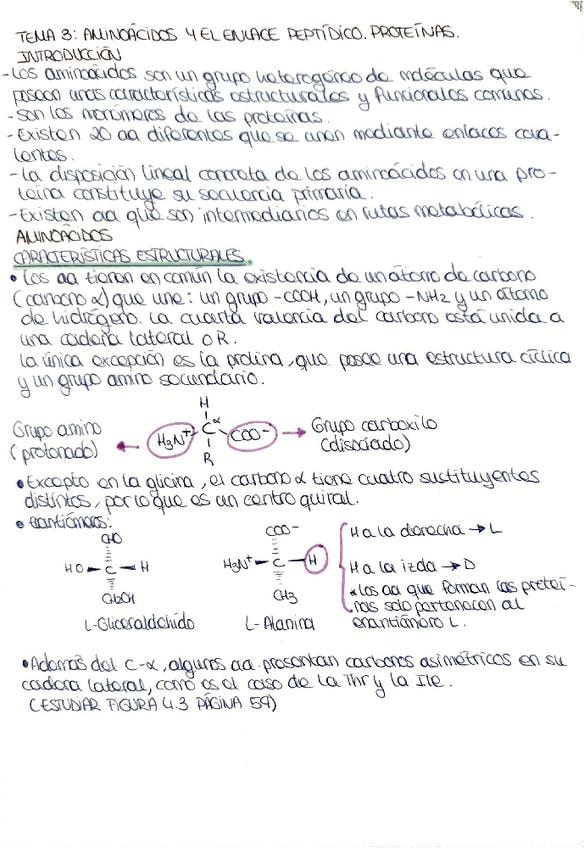 TEMA 3: AMINOÁCIDOS Y EL ENLACE PEPTÍDICO. PROTEÍNAS.
INTRODUCCIÓN
-Los aminoácidos son un grupo heterogéneo de moléculas que
poseen unas características estructurales y funcionales comunes.
-Son los monómeros de las proteínas.
-Existen 20 aa diferentes que se unen mediante enlaces cova-
lentes.
-La disposición lineal concreta de los aminoácidos en una pro-
teína constituye su secuencia primaria.
-Existen aa que son intermediarios en rutas metabólicas.
AMINOÁCIDOS
CARACTERÍSTICAS ESTRUCTURALES.
• Los aa tienen en común la existencia de un átomo de carbono
(carbono α) que une: un grupo -COOH, un grupo -NH2 y un átomo
de hidrógeno. La cuarta valencia del carbono está unida a
una cadena lateral o R.
La única excepción es la prolina, que posee una estructura cíclica
y un grupo amino secundario.
H
Grupo amino H3N+ C α COO- → Grupo carboxilo
(protonado) ← (disociado)
R
• Excepto en la glicina, el carbono α tiene cuatro sustituyentes
distintos, por lo que es un centro quiral.
• Enantiómeros:
CHO COO- H a la derecha → L
HO C H H3N+ C H H a la izda → D
CH2OH CH3 * Los aa que forman las proteí-
nas solo pertenecen al
L-Gliceraldehído L-Alanina enantiómero L.
• Además del C-α, algunos aa presentan carbonos asimétricos en su
cadena lateral, como es el caso de la Thr y la Ile.
(ESTUDIAR FIGURA 4.3 PÁGINA 59)